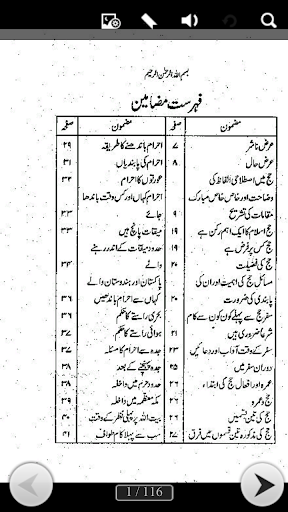 بسم اللہ الرحمٰن الرحیم
فہرست مضامین
مضمون صفحہ مضمون صفحہ
عرض ناشر ۷ احرام باندھنے کا طریقہ ۲۹
عرض حال ۸ احرام کی پابندیاں ۳۱
حج میں اصطلاحی الفاظ کی عورتوں کا احرام ۳۲
وضاحت اور خاص خاص مبارک احرام کہاں اور کس وقت باندھا
مقامات کی تشریح ۹ جائے ۳۳
حج اسلام کا ایک اہم رکن ہے ۱۹ میقات پانچ ہیں ۳۳
حج کس پر فرض ہے ۲۰ حدود میقات کے اندر رہنے
حج کی فضیلت ۲۰ والے ۳۴
مسائل حج کی اہمیت اور ان کی پاکستان اور ہندوستان والے
پابندی کی ضرورت ۲۰ کہاں سے احرام باندھیں ۳۶
سفر حج سے پہلے کون کون سے کام بحری راستے کا حکم ۳۶
شرعاً ضروری ہیں ۲۱ ہوائی راستے کا حکم ۳۷
سفر کے وقت آداب اور دعائیں ۲۳ جدہ سے احرام کا مسئلہ ۳۷
دوران سفر میں ۲۵ جدہ پہنچنے کے بعد ۳۸
عمرہ اور افعال حج کی ابتداء ۲۶ حدود حرم میں داخلہ ۳۸
حج و عمرہ ۲۶ مکہ معظمہ میں داخلہ ۳۸
حج کی تین قسمیں ۲۶ بیت اللہ پر پہلی نظر کے وقت ۴۰
حج کی مذکورہ تین قسموں میں فرق ۲۷ سب سے پہلا کام طواف ۴۱
1 / 116